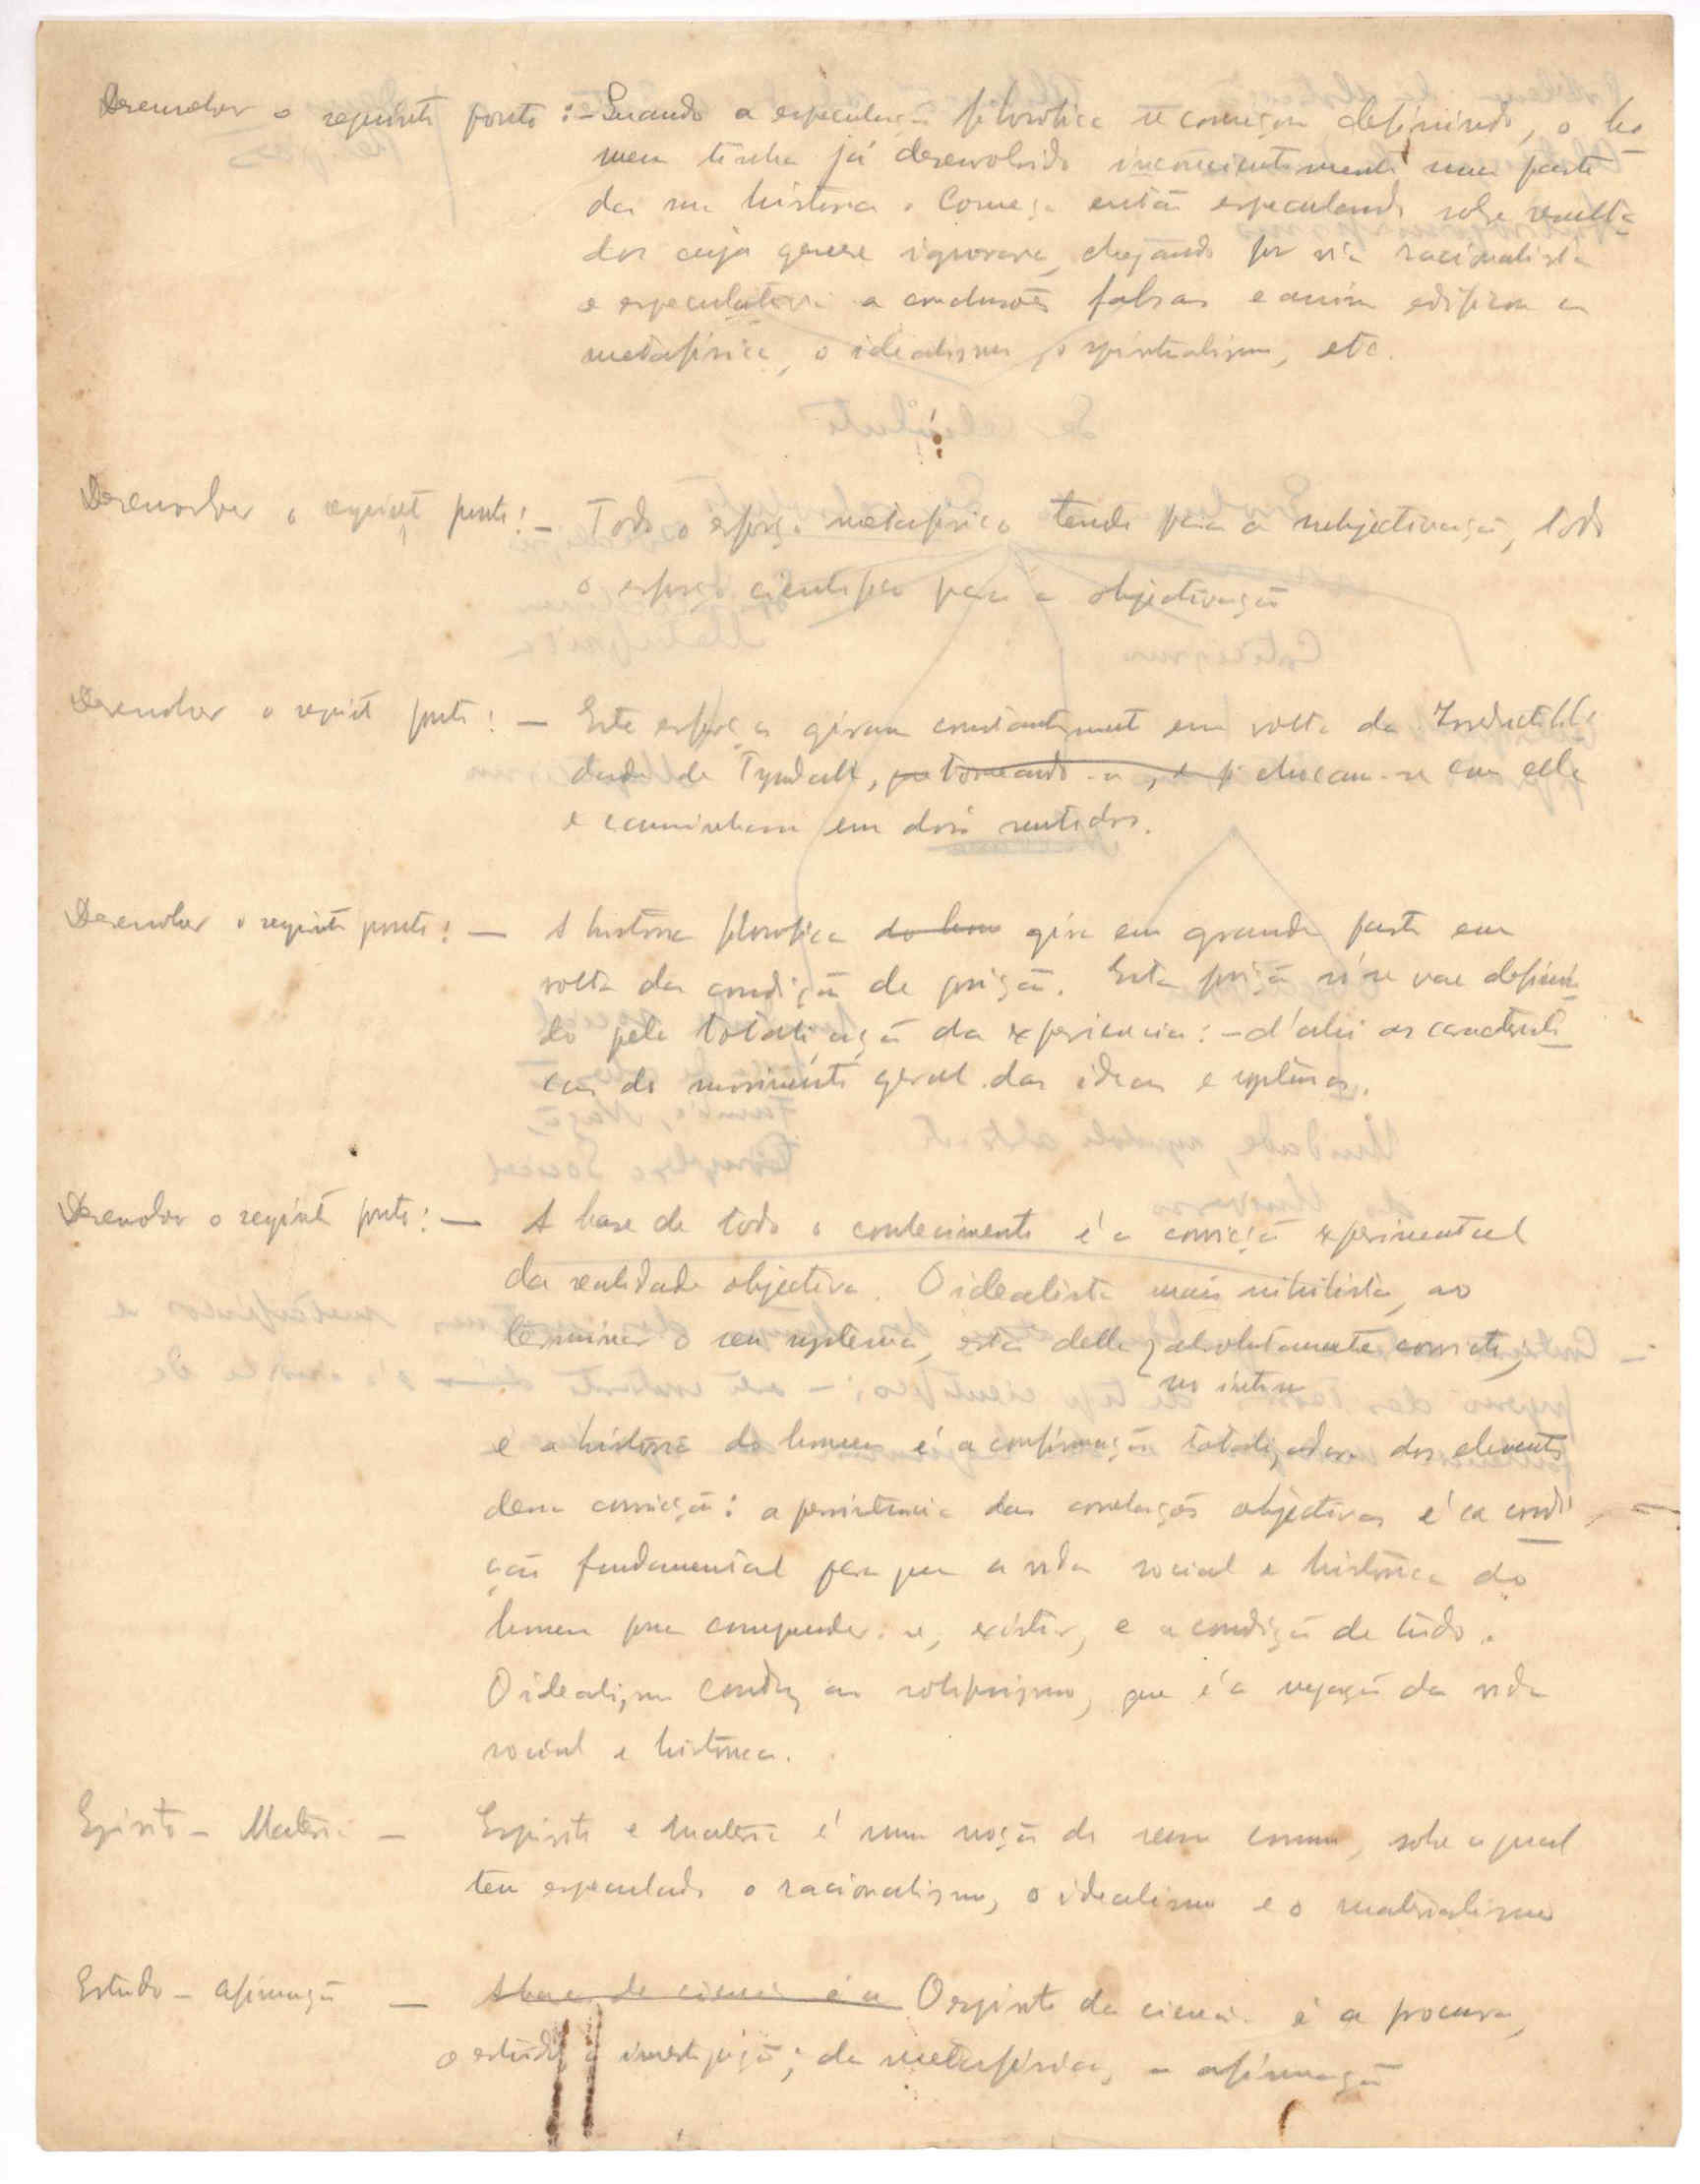 Desenvolver o seguinte ponto: - Quando a especulação filosofica se começou definindo, o ho
mem tinha já desenvolvido inconscientemente uma parte
da sua historia. Começa então especulando sobre resulta
dos cuja genese ignorava, chegando por via racionalista
e especulativa a conclusões falsas e assim edificou a
metafísica, o idealismo, o spiritualismo, etc.
Desenvolver o seguinte ponto: - Todo o esforço metafisico tende para a subjectivação, todo
o esforço cientifico para a objectivação
Desenvolver o seguinte ponto: - Este esforços giram constantemente em volta da Irreductibili
dade de Tyndall, torneando-a, e chocam-se com ella
e caminham em dois sentidos.
Desenvolver o seguinte ponto: - A historia filosofica do hom gira em grande parte em
volta da condição de posição. Esta posição só se vae definin
do pela totalização da experiencia: - d'ahi as caracteristi
cas do movimento geral das ideas e systemas.
Desenvolver o seguinte ponto: - A base de todo o conhecimento é a convicção experimental
da realidade objectiva. O idealista mais nihilista, ao
terminar o seu systema, está delle absolutamente convicto,
no intimo
e a historia do homem é a confirmação totalizadora dos elementos
dessa convicção: a persistencia das correlações objectivas é a condi
ção fundamental para que a vida social e historica do
homem possa comprehender-se, existir, e a condição de tudo.
O idealismo conduz ao solipsismo, que é a negação da vida
social e historica.
Espirito - Materia - Espirito e materia é uma noção do senso comum, sobre a qual
tem especulado o racionalismo, o idealismo e o materialismo
Estudo - afirmação - A base da ciencia é a O espirito da ciencia é a procura,
o estudo, a investigação; da metafísica, a afirmação